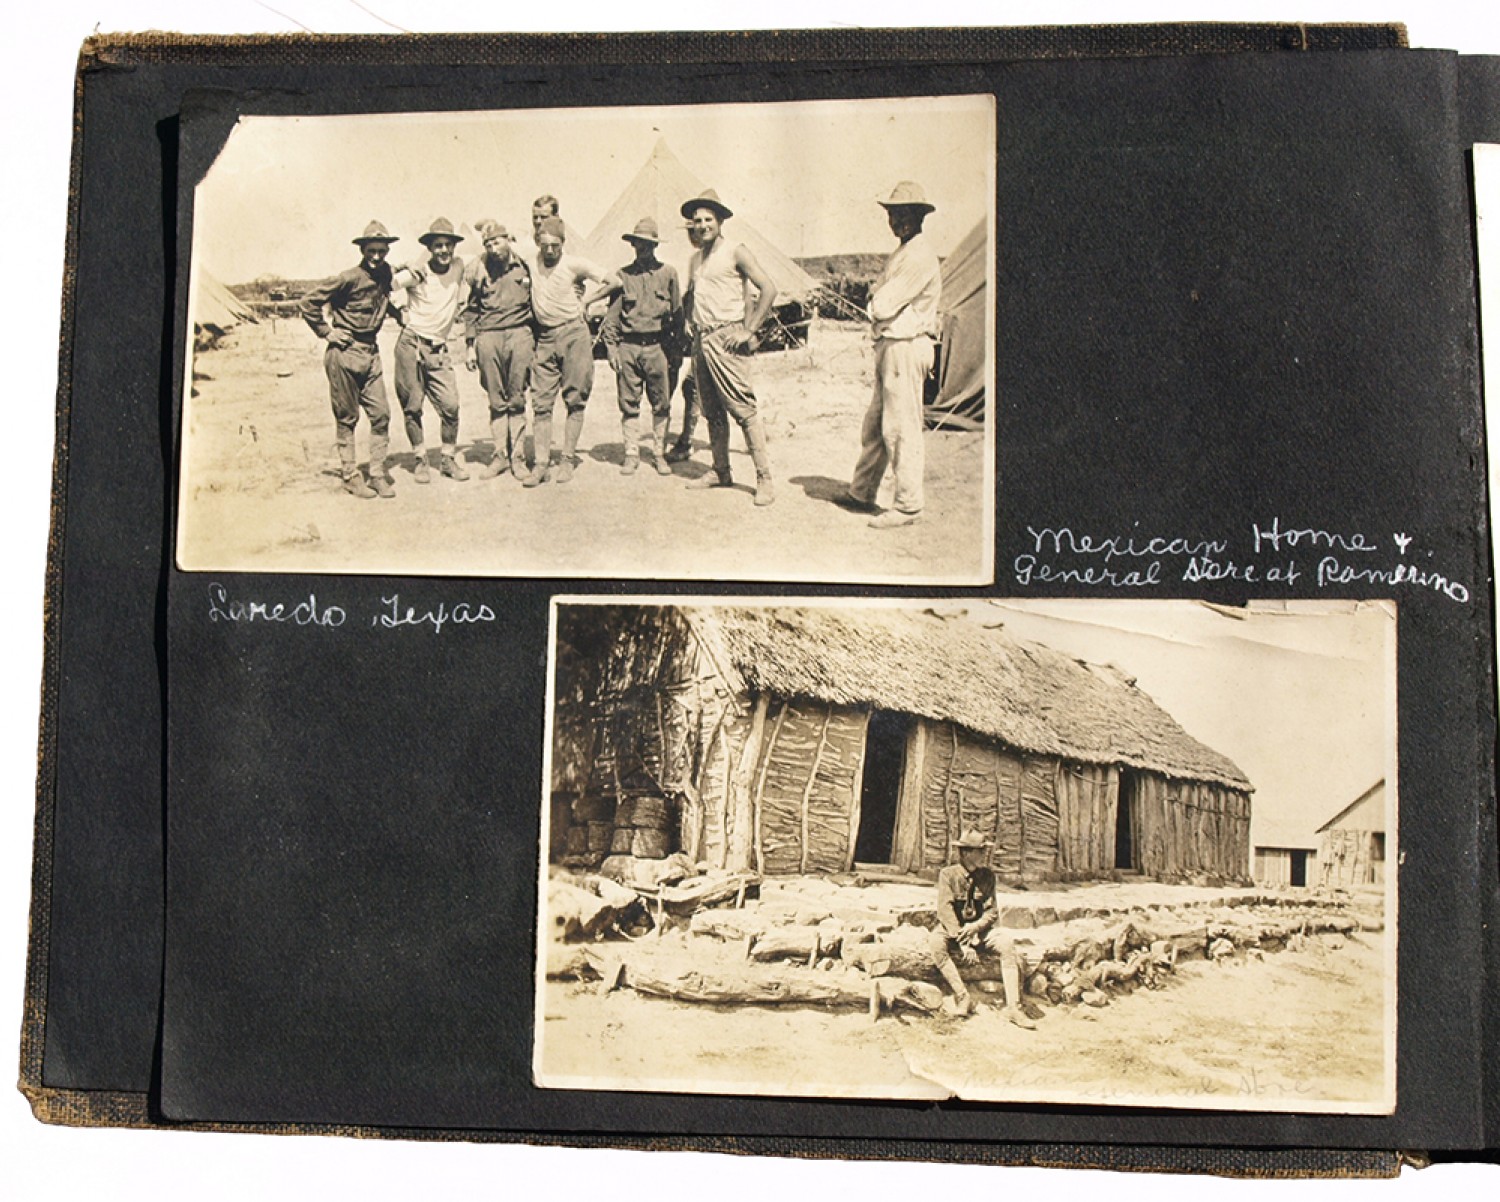 Laredo, Texas
Mexican Home &
General Store at Ramerino
General Store